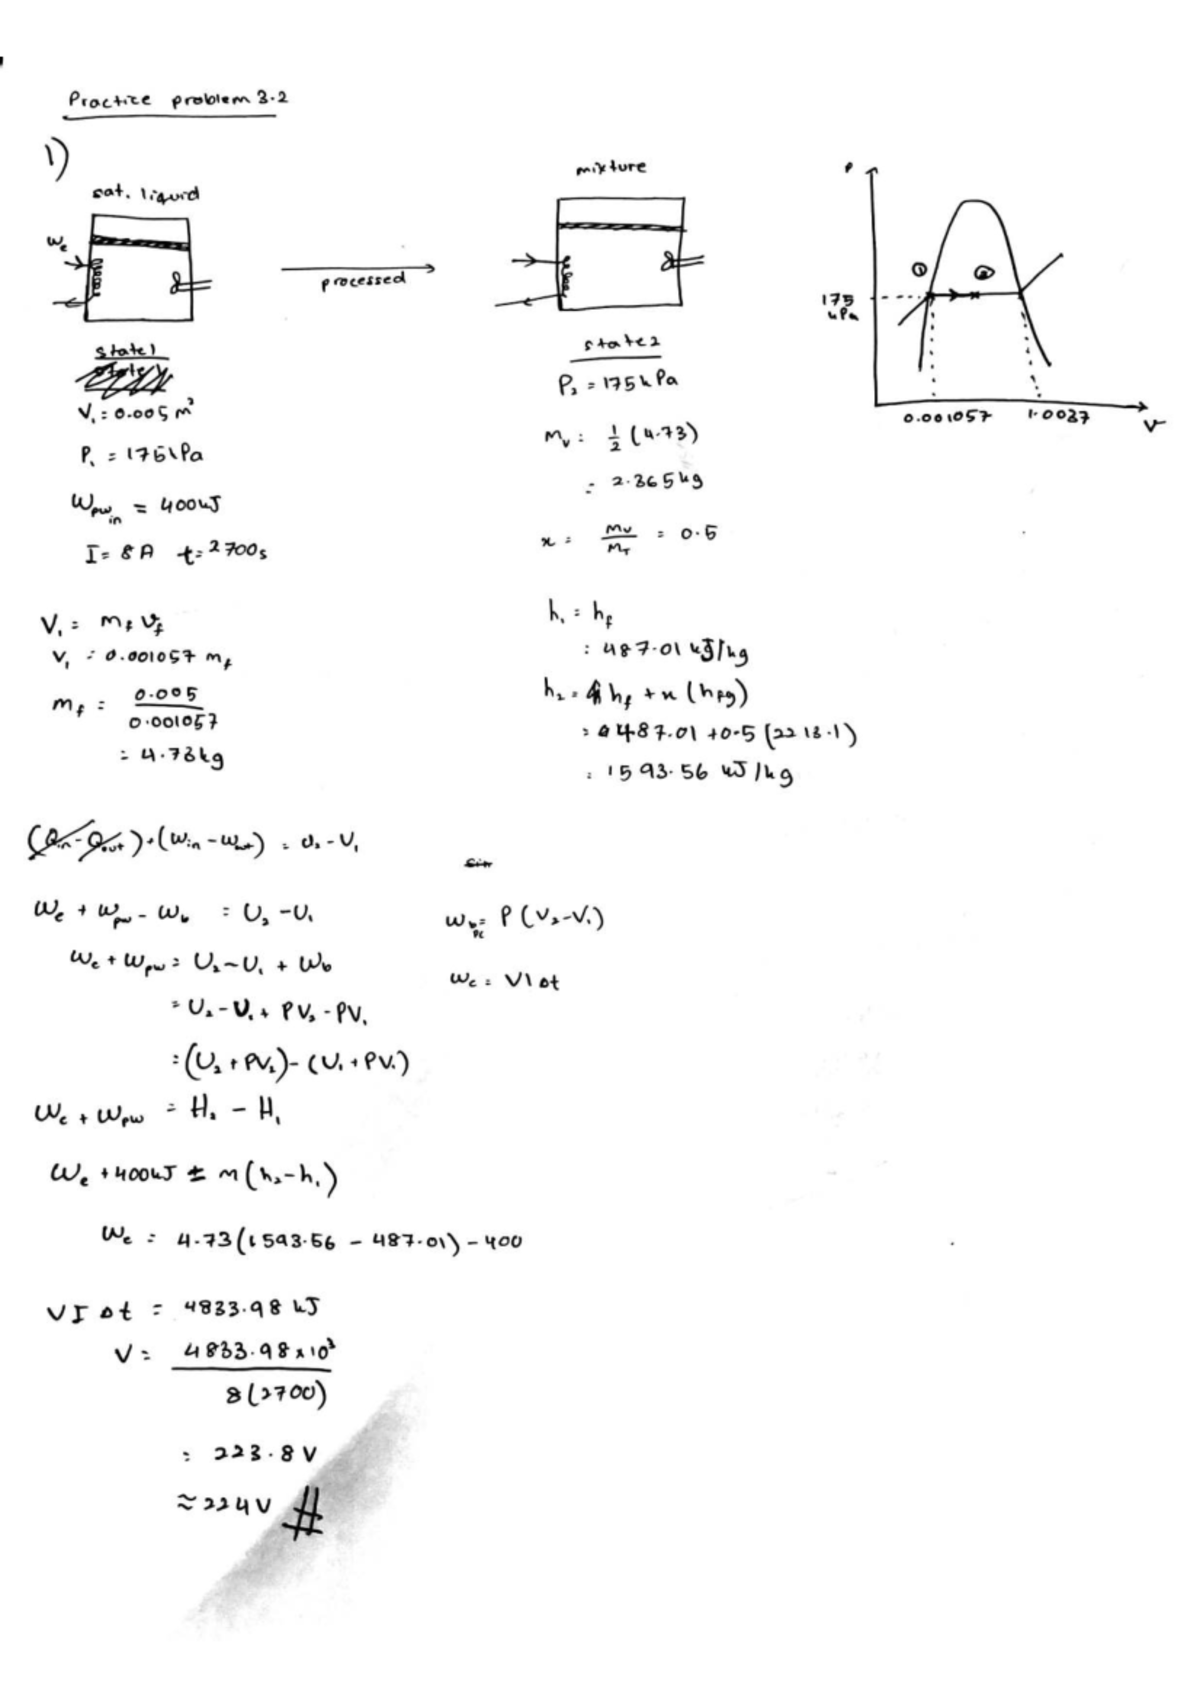 Practice problem 3.2
1)
sat. liquid
We
processed
mixture
P
① ②
175 kPa
0.001057 1.0037 V
state 1
V₁ = 0.005 m³
P₁ = 175 kPa
Wpw in = 400 kJ
I = 8A t = 2700s
state 2
P₂ = 175 kPa
Mv = 1/2 (4.73)
= 2.365 kg
x = Mv/MT = 0.5
V₁ = mf vf
V₁ = 0.001057 mf
mf = 0.005/0.001057
= 4.73 kg
h₁ = hf
= 487.01 kJ/kg
h₂ = hf + x (hfg)
= 487.01 + 0.5 (2213.1)
= 1593.56 kJ/kg
(Qin - Qout) + (Win - Wout) = U₂ - U₁
We + Wpw - Wb = U₂ - U₁
We + Wpw = U₂ - U₁ + Wb
= U₂ - U₁ + PV₂ - PV₁
= (U₂ + PV₂) - (U₁ + PV₁)
We + Wpw = H₂ - H₁
We + 400 kJ = m (h₂ - h₁)
We = 4.73 (1593.56 - 487.01) - 400
Wb = P (V₂ - V₁)
Pc
We = VI Δt
VI Δt = 4833.98 kJ
V = 4833.98 x 10³ / 8(2700)
= 223.8 V
≈ 224 V #